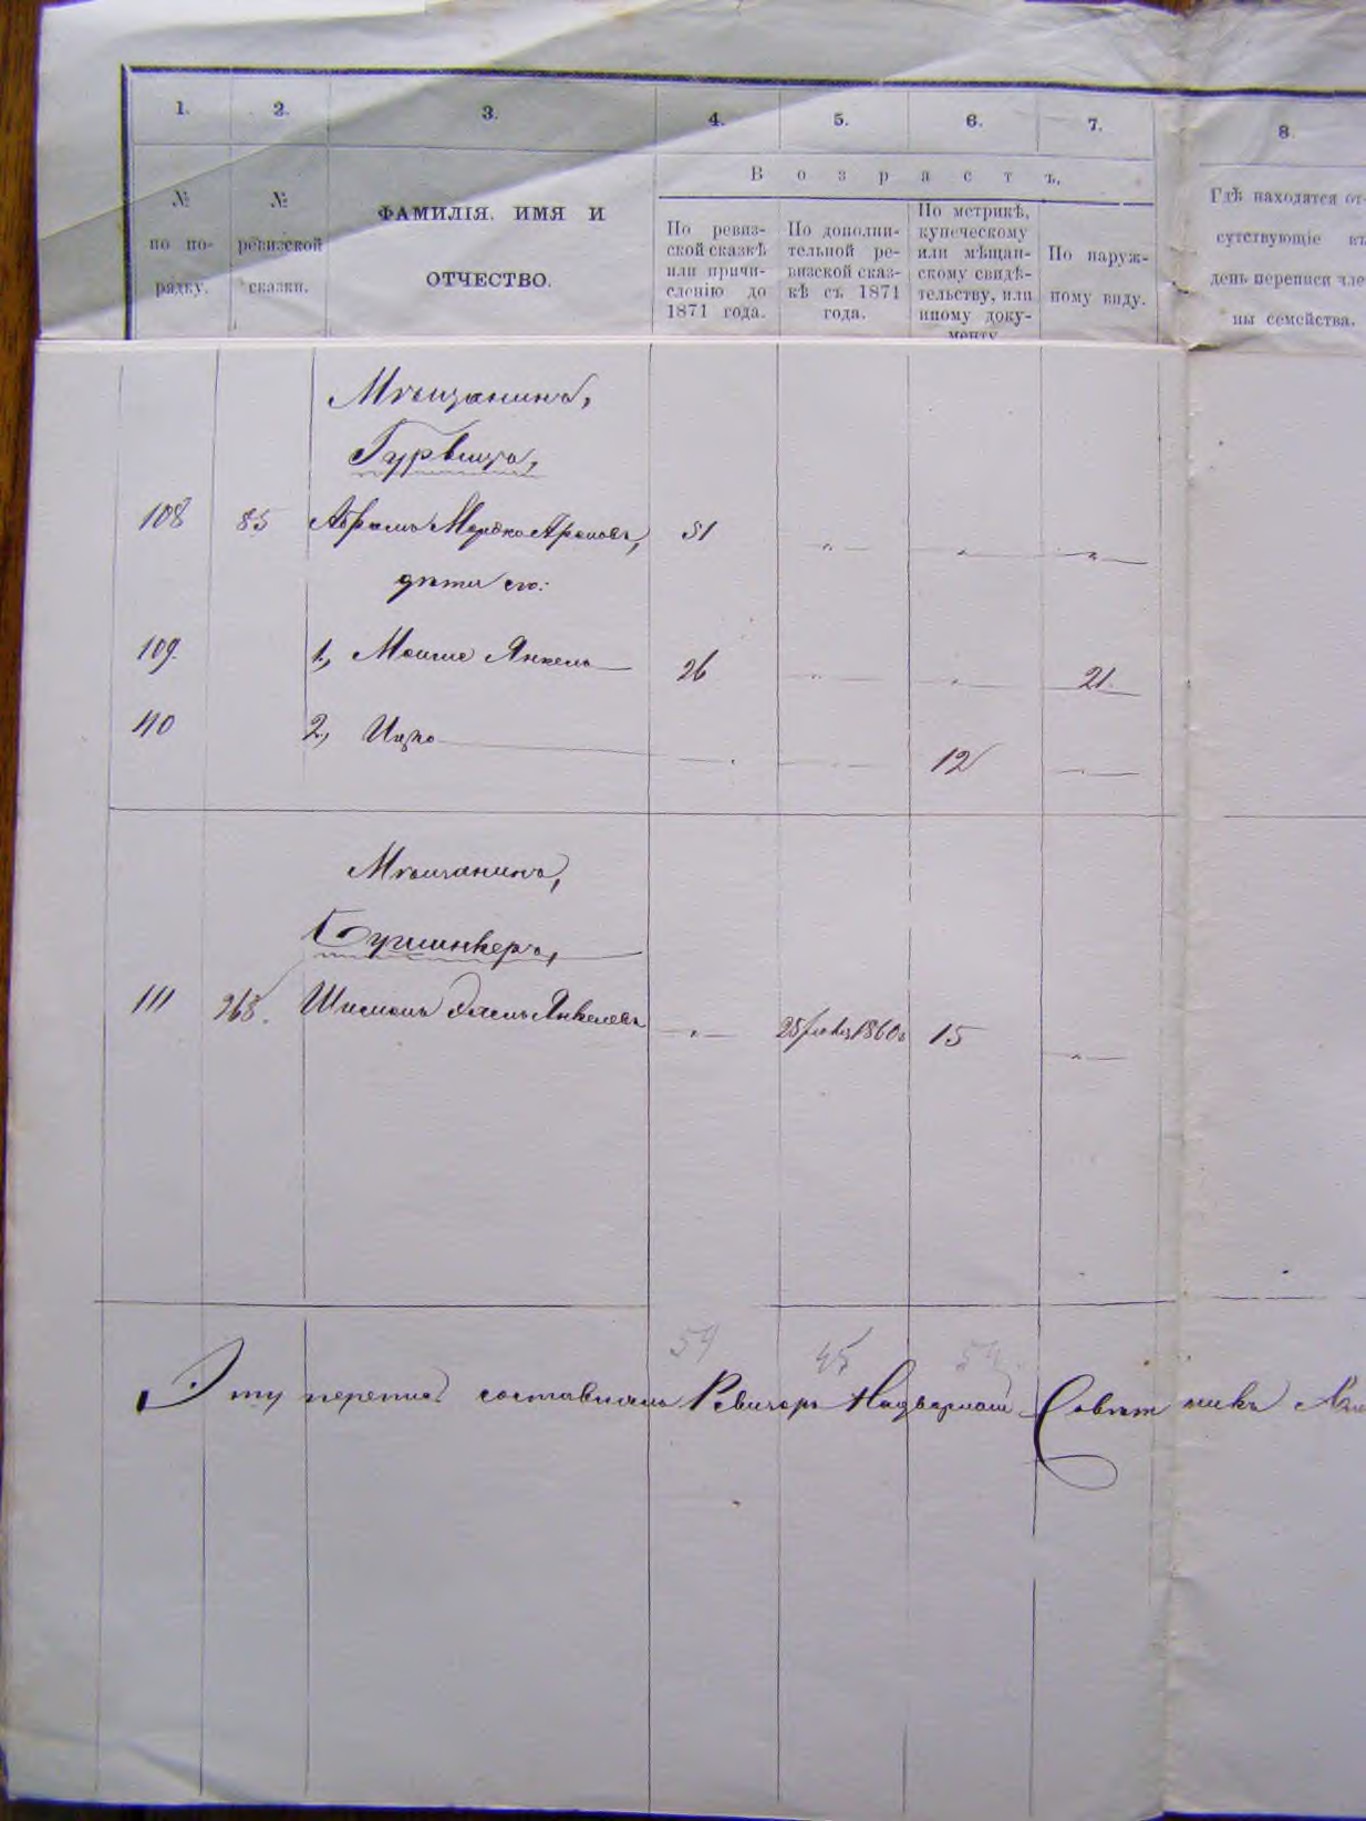 1. 2. 3. 4. 5. 6. 7. 8.
Возрастъ.
№ по порядку.
№ ревизской сказки.
ФАМИЛІЯ, ИМЯ И
ОТЧЕСТВО.
По ревиз-
ской сказкѣ
или причи-
сленію до
1871 года.
По дополни-
тельной ре-
визской сказ-
кѣ съ 1871
года.
По метрикѣ,
купеческому
или мѣщан-
скому свидѣ-
тельству, или
иному доку-
менту
По наруж-
ному виду.
Гдѣ находятся от-
сутствующіе въ
день переписи чле-
ны семейства.
Мѣщанинъ,
Гурвицъ,
108 85 Абрамъ Мордко Ароновъ, 51
дѣти его:
109. 1., Мошке Янкель 26 21.
110 2., Ицко 12
Мѣщанинъ,
111 268. Шмемонъ Янкелевъ 1860 15
54 45 54
Эту перепись составилъ Ревизоръ Надворный Совѣтникъ